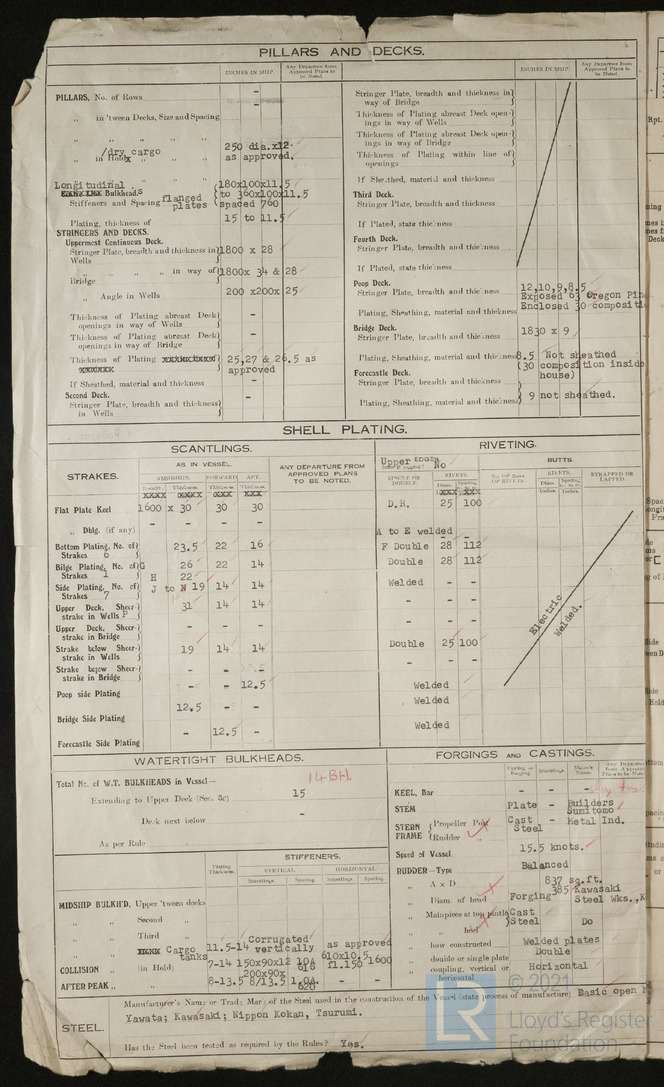 PILLARS AND DECKS.
INCHES IN SHIP.
Any Departure from Approved Plans to be Noted.
PILLARS, No. of Rows -
„ in 'tween Decks, Size and Spacing -
„ „ „ „ „
/dry cargo
„ in Hold „ „ 250 dia.x12. as approved.
Longitudinal Bulkheads
Stiffeners and Spacing flanged plates 180x100x11.5 to 360x100x11.5 spaced 760
Plating, thickness of 15 to 11.5
STRINGERS AND DECKS.
Uppermost Continuous Deck.
Stringer Plate, breadth and thickness in Wells 1800 x 28
„ „ „ „ in way of Bridge 1800x 34 & 28
„ Angle in Wells 200 x200x 25
Thickness of Plating abreast Deck openings in way of Wells -
Thickness of Plating abreast Deck openings in way of Bridge -
Thickness of Plating 25,27 & 26.5 as approved
If Sheathed, material and thickness -
Second Deck.
Stringer Plate, breadth and thickness in Wells -
INCHES IN SHIP.
Any Departure from Approved Plans to be Noted.
Stringer Plate, breadth and thickness in way of Bridge
Thickness of Plating abreast Deck openings in way of Wells
Thickness of Plating abreast Deck openings in way of Bridge
Thickness of Plating within line of openings
If Sheathed, material and thickness
Third Deck.
Stringer Plate, breadth and thickness
If Plated, state thickness
Fourth Deck.
Stringer Plate, breadth and thickness
If Plated, state thickness
Poop Deck.
Stringer Plate, breadth and thickness 12,10,9,8.5
Plating, Sheathing, material and thickness Exposed 63 Oregon Pin
Enclosed 30 compositi
Bridge Deck.
Stringer Plate, breadth and thickness 1830 x 9
Plating, Sheathing, material and thickness 8.5 Not sheathed
(30 composition inside house)
Forecastle Deck.
Stringer Plate, breadth and thickness
Plating, Sheathing, material and thickness 9 not sheathed.
SHELL PLATING.
SCANTLINGS.
RIVETING.
STRAKES.
AS IN VESSEL.
AMIDSHIPS. FORWARD. AFT.
Breadth. Thickness. Thickness. Thickness.
ANY DEPARTURE FROM APPROVED PLANS TO BE NOTED.
Upper EDGES. No
BUTTS.
SINGLE OR DOUBLE.
RIVETS.
Diam. Spacing
No. OF ROWS OF RIVETS.
RIVETS.
Diam. Spacing
Inches Inches
STRAPPED OR LAPPED.
Flat Plate Keel 1600 x 30 30 30 D.R. 25 100
„ Dblg. (if any) - - - - A to E welded
Bottom Plating, No. of Strakes 6 23.5 22 16 F Double 28 112
Bilge Plating, No. of Strakes 1 G 26 22 14 Double 28 112
H 22
Side Plating, No. of Strakes 7 J to N 19 14 14 Welded - -
Upper Deck, Sheerstrake in Wells P 31 14 14 - - -
Upper Deck, Sheerstrake in Bridge - - - - - -
Strake below Sheerstrake in Wells 19 14 14 Double 25 100
Strake below Sheerstrake in Bridge - - - - - -
Poop side Plating - - 12.5 Welded
Bridge Side Plating 12.5 Welded
Forecastle Side Plating - 12.5 - Welded
Electric Welded.
WATERTIGHT BULKHEADS.
14 BH
Total No. of W.T. BULKHEADS in Vessel—
Extending to Upper Deck (Sec. 3c) 15
Deck next below -
As per Rule
Plating Thickness.
STIFFENERS.
VERTICAL. HORIZONTAL.
Scantlings. Spacing. Scantlings. Spacing.
MIDSHIP BULKH'D, Upper 'tween decks
„ „ Second „
„ „ Third „
„ „ Cargo tanks 11.5-14 Corrugated vertically as approved
COLLISION „ (in Hold) 7-14 150x90x12 610 610x10.5 1600
AFTER PEAK „ „ 8-13.5 - -
FORGINGS AND CASTINGS.
Casting or Forging. Scantlings. Maker's Name. Any Departure from Approved Plans to be Noted
KEEL, Bar - - -
STEM Plate - Builders
STERN FRAME {Propeller Post Cast Steel - Sumitomo Metal Ind.
Rudder „
Speed of Vessel 15.5 knots.
RUDDER—Type Balanced
„ A x D 837 sq.ft.
„ Diam. of head Forging 385 Kawasaki Steel Wks.,K
„ Mainpiece at top pintle Cast Steel Do
„ „ heel
„ how constructed Welded plates
„ double or single plate Double
„ coupling, vertical or horizontal Horizontal
STEEL.
Manufacturer's Name or Trade Mark of the Steel used in the construction of the Vessel (state process of manufacture) Basic open
Yawata; Kawasaki; Nippon Kokan, Tsurumi.
Has the Steel been tested as required by the Rules? Yes.
© 2021
LR
Lloyd's Register
Foundation